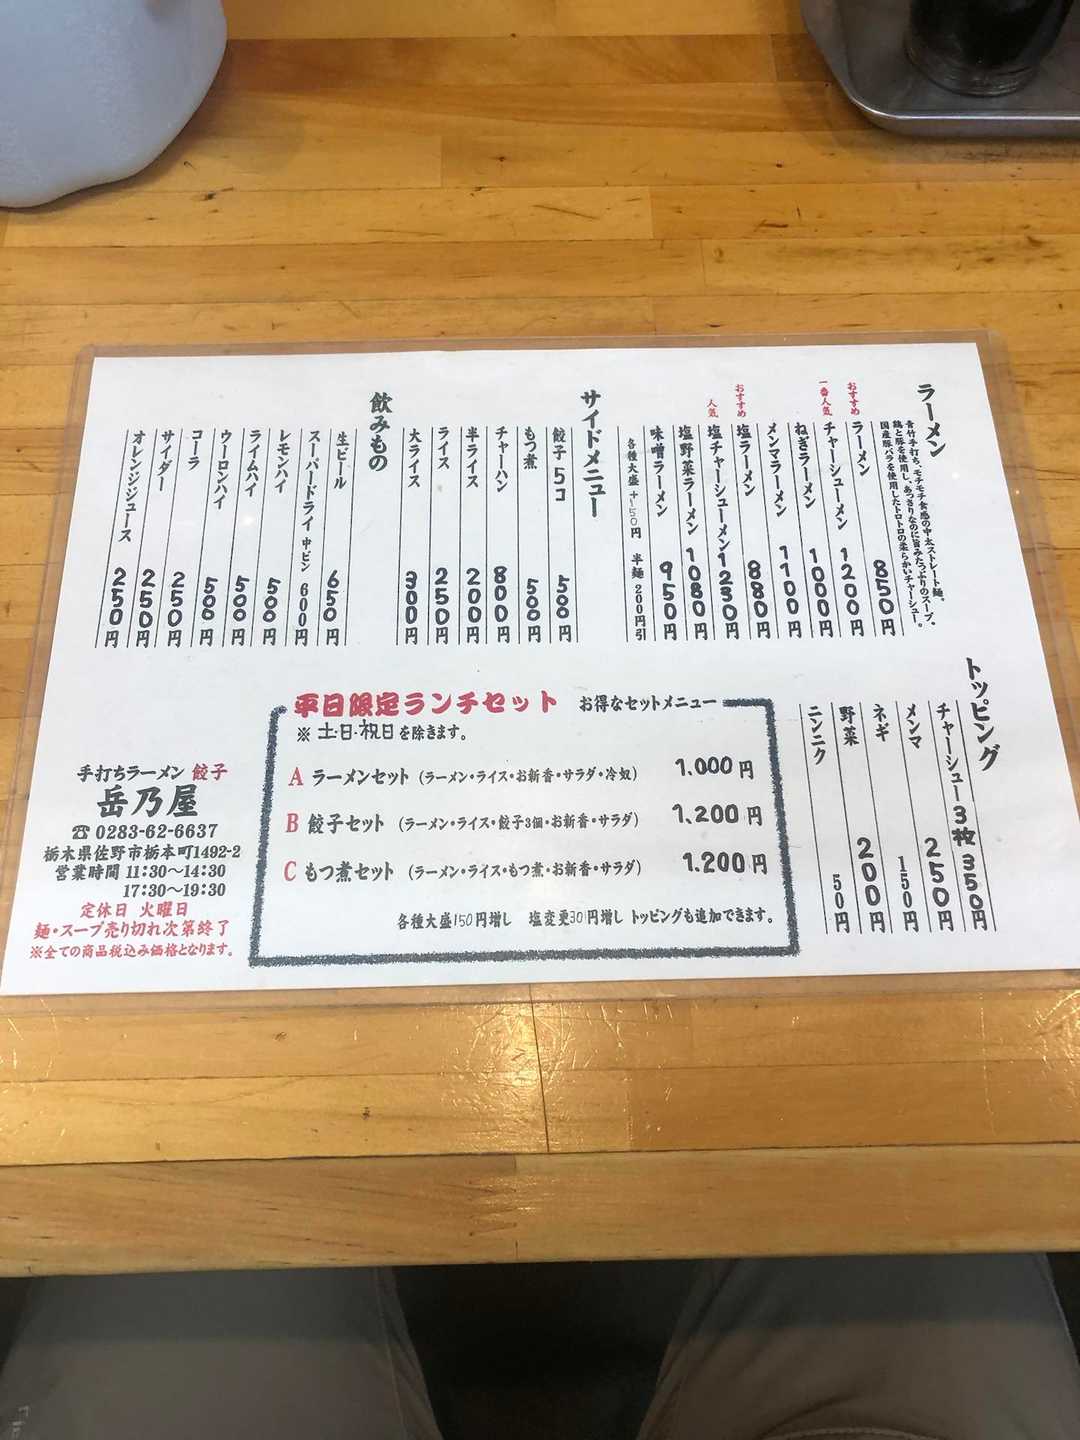 ラーメン
青竹手打ち、モチモチ食感の中太ストレート麺。
鶏と豚を使用し、あっさりなのに旨みたっぷりのスープ。
国産豚バラを使用したトロトロの柔らかいチャーシュー。
おすすめ ラーメン 850円
一番人気 チャーシューメン 1200円
ねぎラーメン 1000円
メンマラーメン 1100円
おすすめ 塩ラーメン 880円
人気 塩チャーシューメン 1230円
塩野菜ラーメン 1080円
味噌ラーメン 950円
各種大盛 +150円 半麺 200円引
サイドメニュー
餃子 5コ 500円
もつ煮 500円
チャーハン 800円
半ライス 200円
ライス 250円
大ライス 300円
飲みもの
生ビール 650円
スーパードライ 中ビン 600円
レモンハイ 500円
ライムハイ 500円
ウーロンハイ 500円
コーラ 250円
サイダー 250円
オレンジジュース 250円
トッピング
チャーシュー3枚 350円
メンマ 250円
ネギ 150円
野菜 200円
ニンニク 50円
平日限定ランチセット お得なセットメニュー
※ 土・日・祝日を除きます。
A ラーメンセット (ラーメン・ライス・お新香・サラダ・冷奴) 1.000円
B 餃子セット (ラーメン・ライス・餃子3個・お新香・サラダ) 1.200円
C もつ煮セット (ラーメン・ライス・もつ煮・お新香・サラダ) 1.200円
各種大盛150円増し 塩変更30円増し トッピングも追加できます。
手打ちラーメン 餃子
岳乃屋
☎ 0283-62-6637
栃木県佐野市栃本町1492-2
営業時間 11:30～14:30
17:30～19:30
定休日 火曜日
麺・スープ売り切れ次第終了
※全ての商品税込み価格となります。